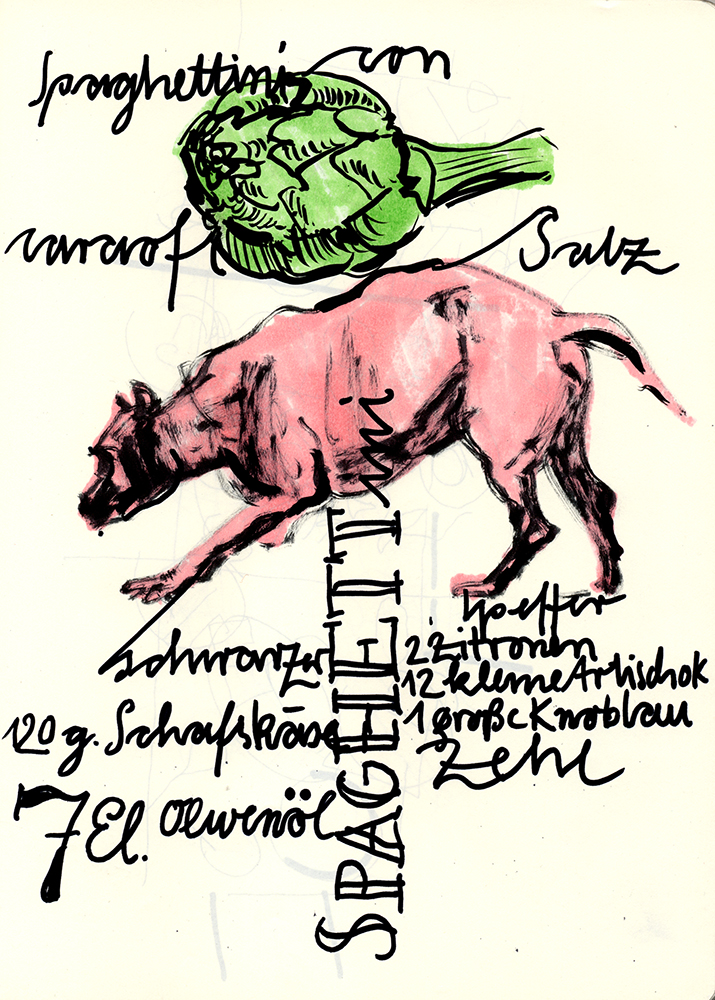 Spaghettini con
carciofi
Salz
SPAGHETTini
schwarzer
Pfeffer
2 Zitronen
12 kleine Artischok
1 große Knoblau
Zehe
120 g. Schafskäse
7 El. Olivenöl